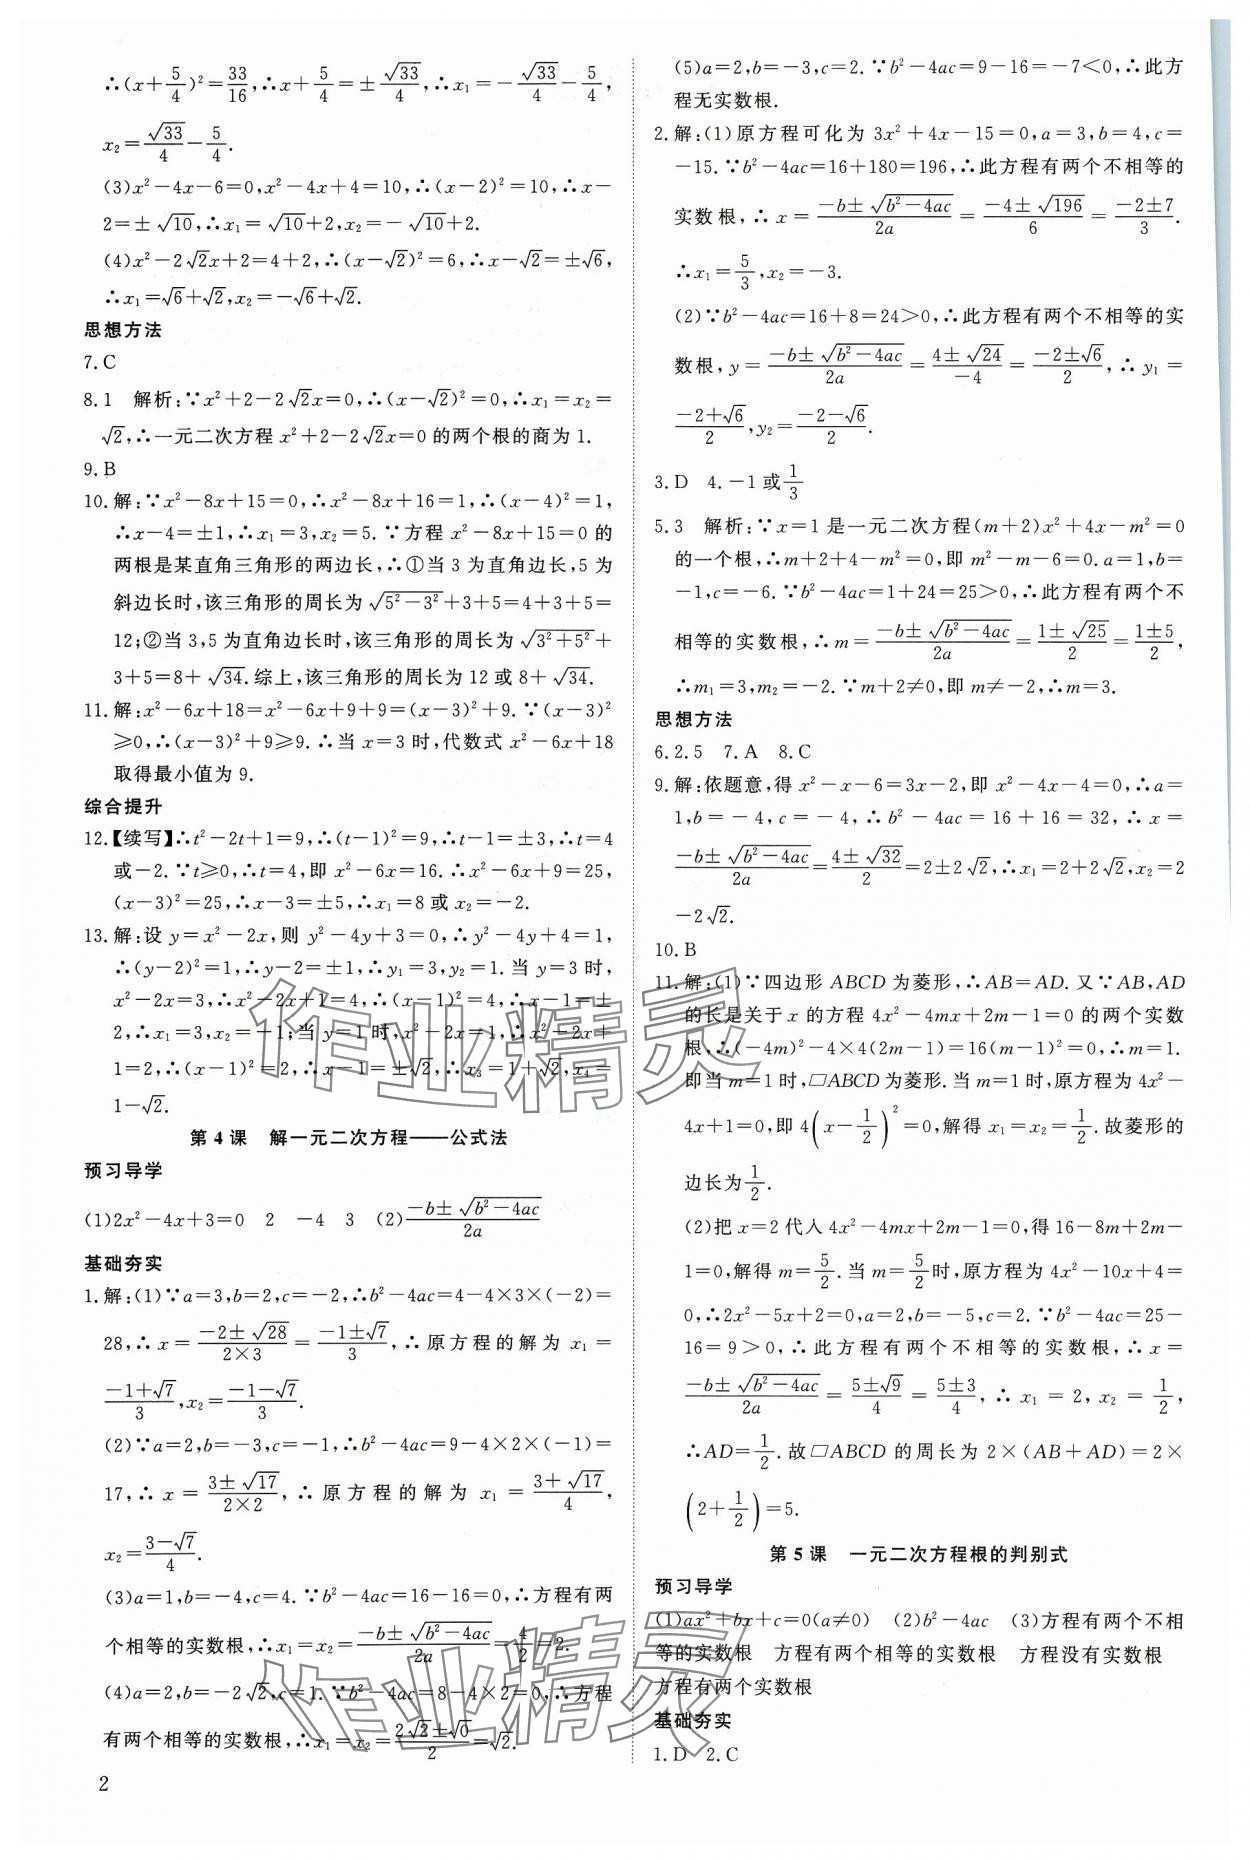 ∴(x+5/4)²=33/16,∴x+5/4=±√33/4,∴x₁=-√33/4-5/4,
x₂=√33/4-5/4.
(3)x²-4x-6=0,x²-4x+4=10,∴(x-2)²=10,∴x-
2=±√10,∴x₁=√10+2,x₂=-√10+2.
(4)x²-2√2x+2=4+2,∴(x-√2)²=6,∴x-√2=±√6,
∴x₁=√6+√2,x₂=-√6+√2.
思想方法
7.C
8.1 解析:∵x²+2-2√2x=0,∴(x-√2)²=0,∴x₁=x₂=
√2,∴一元二次方程 x²+2-2√2x=0 的两个根的商为1.
9.B
10.解:∵x²-8x+15=0,∴x²-8x+16=1,∴(x-4)²=1,
∴x-4=±1,∴x₁=3,x₂=5.∵方程 x²-8x+15=0 的
两根是某直角三角形的两边长,∴①当3为直角边长,5为
斜边长时,该三角形的周长为√(5²-3²)+3+5=4+3+5=
12;②当3,5为直角边长时,该三角形的周长为√(3²+5²)+
3+5=8+√34.综上,该三角形的周长为12或8+√34.
11.解:x²-6x+18=x²-6x+9+9=(x-3)²+9.∵(x-3)²
≥0,∴(x-3)²+9≥9.∴当 x=3 时,代数式 x²-6x+18
取得最小值为9.
综合提升
12.【续写】∴t²-2t+1=9,∴(t-1)²=9,∴t-1=±3,∴t=4
或-2.∵t≥0,∴t=4,即 x²-6x=16.∴x²-6x+9=25,
(x-3)²=25,∴x-3=±5,∴x₁=8 或 x₂=-2.
13.解:设 y=x²-2x,则 y²-4y+3=0,∴y²-4y+4=1,
∴(y-2)²=1,∴y-2=±1,∴y₁=3,y₂=1.当 y=3 时,
x²-2x=3,∴x²-2x+1=4,∴(x-1)²=4,∴x-1=±
2,∴x₁=3,x₂=-1;当 y=1 时,x²-2x=1,∴x²-2x+
1=2,∴(x-1)²=2,∴x-1=±√2,∴x₃=1+√2,x₄=
1-√2.
第4课 解一元二次方程——公式法
预习导学
(1)2x²-4x+3=0 2 -4 3 (2)(-b±√(b²-4ac))/2a
基础夯实
1.解:(1)∵a=3,b=2,c=-2,∴b²-4ac=4-4×3×(-2)=
28,∴x=(-2±√28)/(2×3)=(-1±√7)/3,∴原方程的解为 x₁=
(-1+√7)/3,x₂=(-1-√7)/3.
(2)∵a=2,b=-3,c=-1,∴b²-4ac=9-4×2×(-1)=
17,∴x=(3±√17)/(2×2),∴原方程的解为 x₁=(3+√17)/4,
x₂=(3-√7)/4.
(3)a=1,b=-4,c=4.∵b²-4ac=16-16=0,∴方程有两
个相等的实数根,∴x₁=x₂=(-b±√(b²-4ac))/2a=4/2=2.
(4)a=2,b=-2√2,c=1.∵b²-4ac=8-4×2=0,∴方程
有两个相等的实数根,∴x₁=x₂=(2√2±√0)/2=√2.
2
(5)a=2,b=-3,c=2.∵b²-4ac=9-16=-7<0,∴此方
程无实数根.
2.解:(1)原方程可化为 3x²+4x-15=0,a=3,b=4,c=
-15.∵b²-4ac=16+180=196,∴此方程有两个不相等的
实数根,∴x=(-b±√(b²-4ac))/2a=(-4±√196)/6=(-2±7)/3.
∴x₁=5/3,x₂=-3.
(2)∵b²-4ac=16+8=24>0,∴此方程有两个不相等的实
数根,y=(-b±√(b²-4ac))/2a=(4±√24)/-4=(-2±√6)/2,∴y₁=
(-2+√6)/2,y₂=(-2-√6)/2.
3.D 4.-1或1/3
5.3 解析:∵x=1是一元二次方程(m+2)x²+4x-m²=0
的一个根,∴m+2+4-m²=0,即 m²-m-6=0.a=1,b=
-1,c=-6.∵b²-4ac=1+24=25>0,∴此方程有两个不
相等的实数根,∴m=(-b±√(b²-4ac))/2a=(1±√25)/2=(1±5)/2,
∴m₁=3,m₂=-2.∵m+2≠0,即 m≠-2,∴m=3.
思想方法
6.2.5 7.A 8.C
9.解:依题意,得 x²-x-6=3x-2,即 x²-4x-4=0,∴a=
1,b=-4,c=-4,∴b²-4ac=16+16=32,∴x=
(-b±√(b²-4ac))/2a=(4±√32)/2=2±2√2,∴x₁=2+2√2,x₂=2
-2√2.
10.B
11.解:(1)∵四边形ABCD为菱形,∴AB=AD.又∵AB,AD
的长是关于 x 的方程 4x²-4mx+2m-1=0 的两个实数
根,∴(-4m)²-4×4(2m-1)=16(m-1)²=0,∴m=1.
即当 m=1 时,▱ABCD为菱形.当 m=1 时,原方程为 4x²-
4x+1=0,即 4(x-1/2)²=0,解得 x₁=x₂=1/2.故菱形的
边长为1/2.
(2)把 x=2 代入 4x²-4mx+2m-1=0,得 16-8m+2m-
1=0,解得 m=5/2.当 m=5/2时,原方程为 4x²-10x+4=
0,∴2x²-5x+2=0,a=2,b=-5,c=2.∵b²-4ac=25-
16=9>0,∴此方程有两个不相等的实数根,∴x=
(-b±√(b²-4ac))/2a=(5±√9)/4=(5±3)/4,∴x₁=2,x₂=1/2,
∴AD=1/2.故▱ABCD 的周长为 2×(AB+AD)=2×
(2+1/2)=5.
第5课 一元二次方程根的判别式
预习导学
(1)ax²+bx+c=0(a≠0) (2)b²-4ac (3)方程有两个不相
等的实数根 方程有两个相等的实数根 方程没有实数根
方程有两个实数根
基础夯实
1.D 2.C
作业精灵
作业精灵